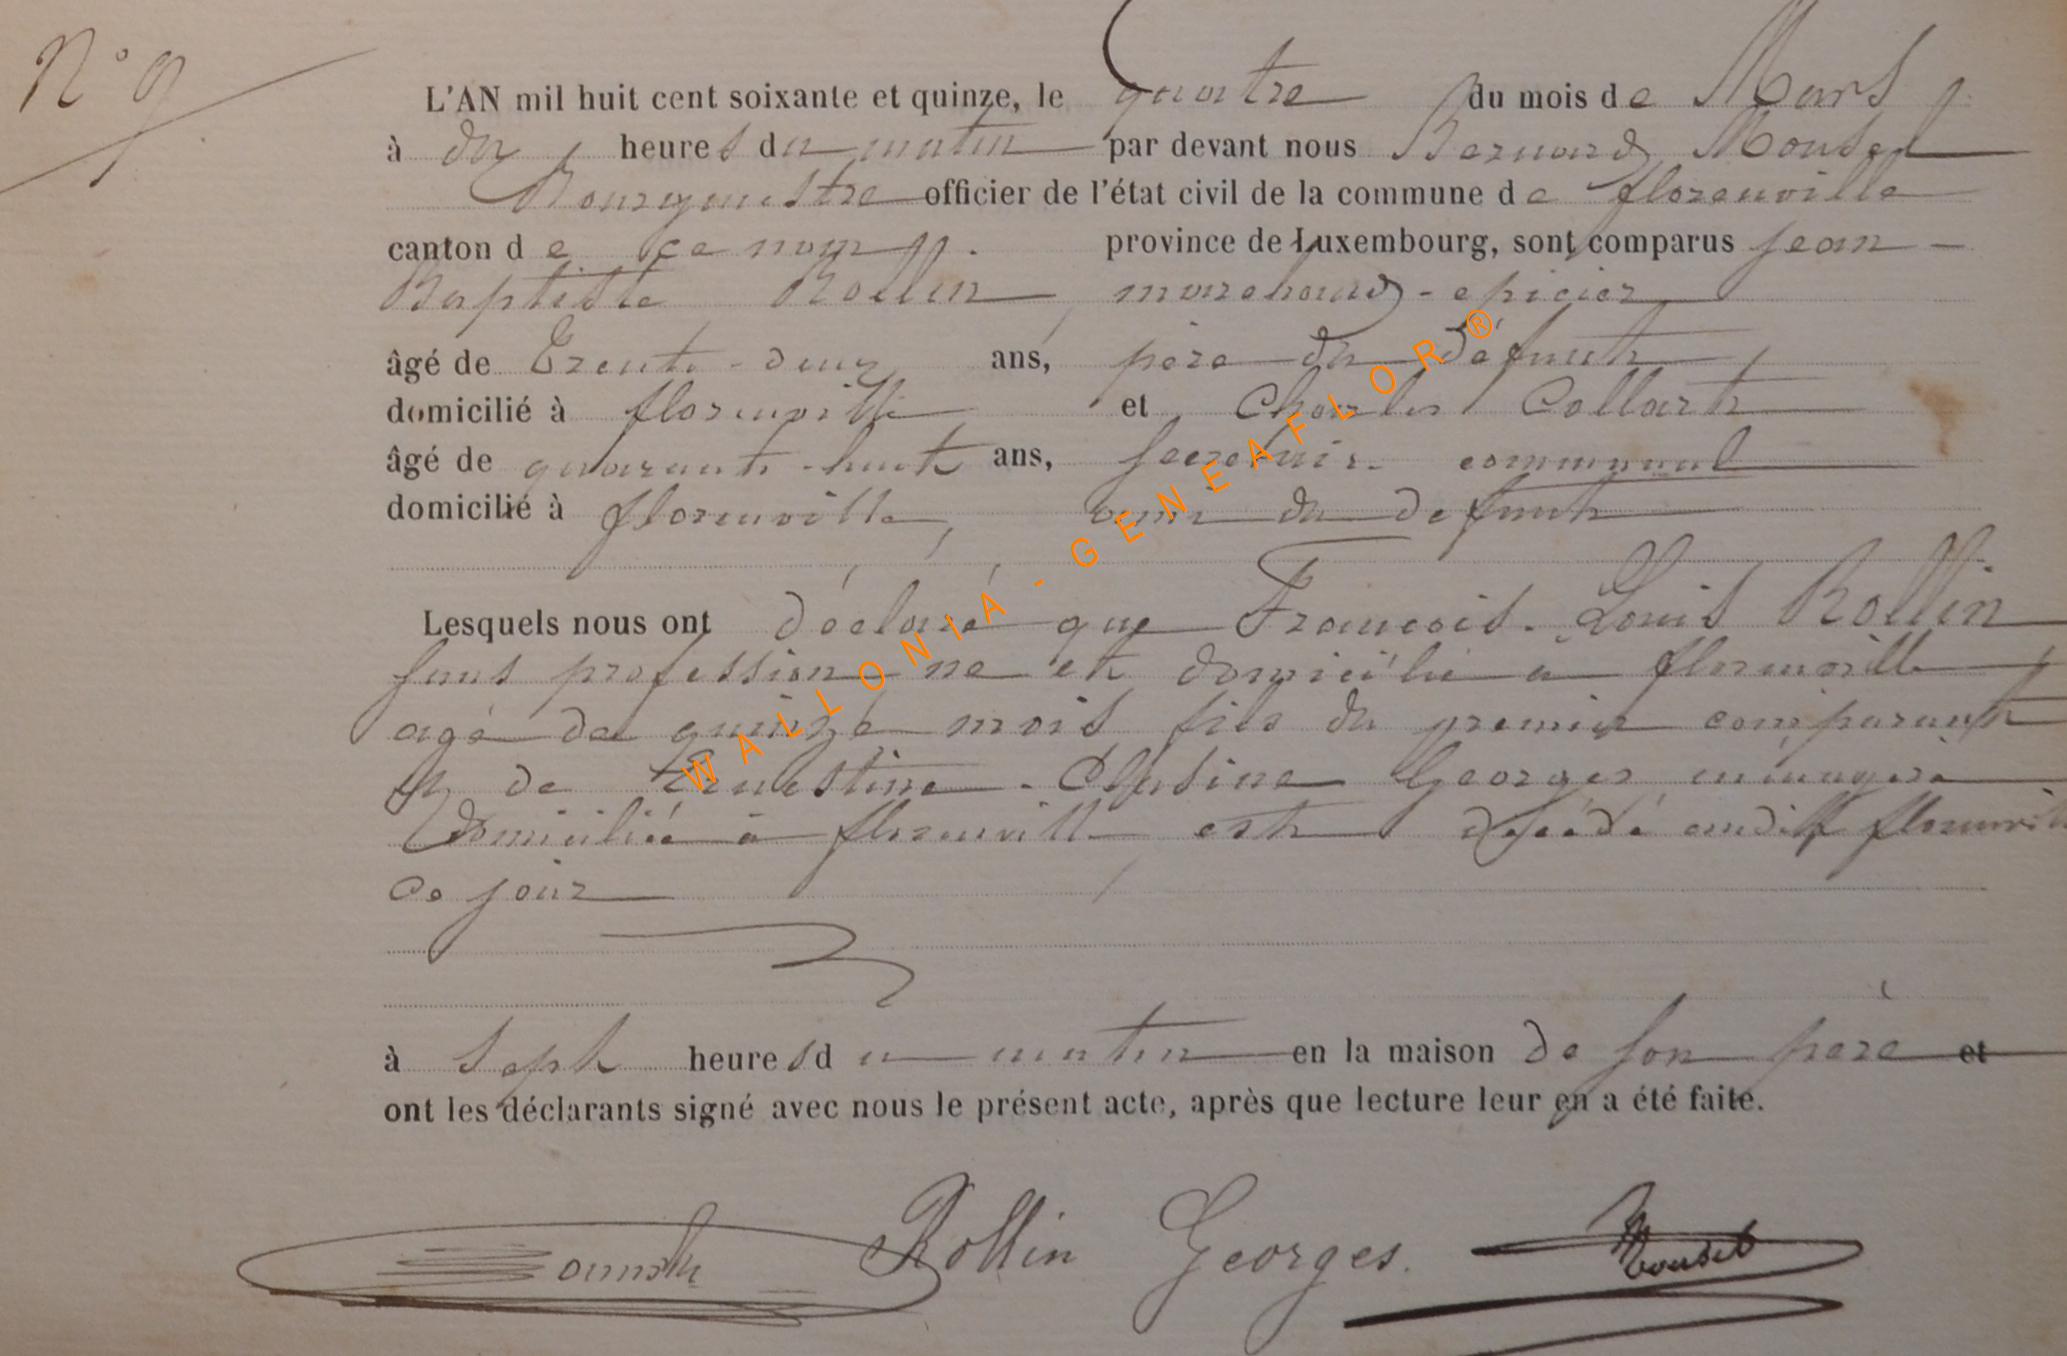 N° 9
L'AN mil huit cent soixante et quinze, le quatre du mois de Mars
à dix heures du matin par devant nous Bernard Mousel
Bourgmestre officier de l'état civil de la commune de florenville
canton de ce nom province de Luxembourg, sont comparus Jean-
Baptiste Rollin, marchand-epicier
âgé de Trente-deux ans, père du défunt,
domicilié à florenville et Charles Collart
âgé de quarante-huit ans, secretaire communal
domicilié à florenville, ami du defunt
Lesquels nous ont déclaré que Francois-Louis Rollin
sans profession né et domicilié à florenville,
agé de quinze mois fils du premier comparant
et de Ernestine- Georges ménagère
Domiciliée à florenville est décédé audit florenville
ce jour
à Sept heures du matin en la maison de son père et
ont les déclarants signé avec nous le présent acte, après que lecture leur en a été faite.
Rollin Georges. Mousel
WALLONIA-GENEAFLOR®